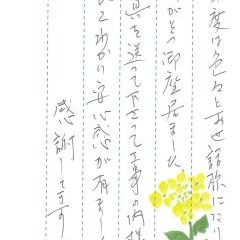 の度は色々とお世話になり
がとう御座居ました
真を送って下さって工事の内容
よくわかり安心感が有りまし
感謝してます